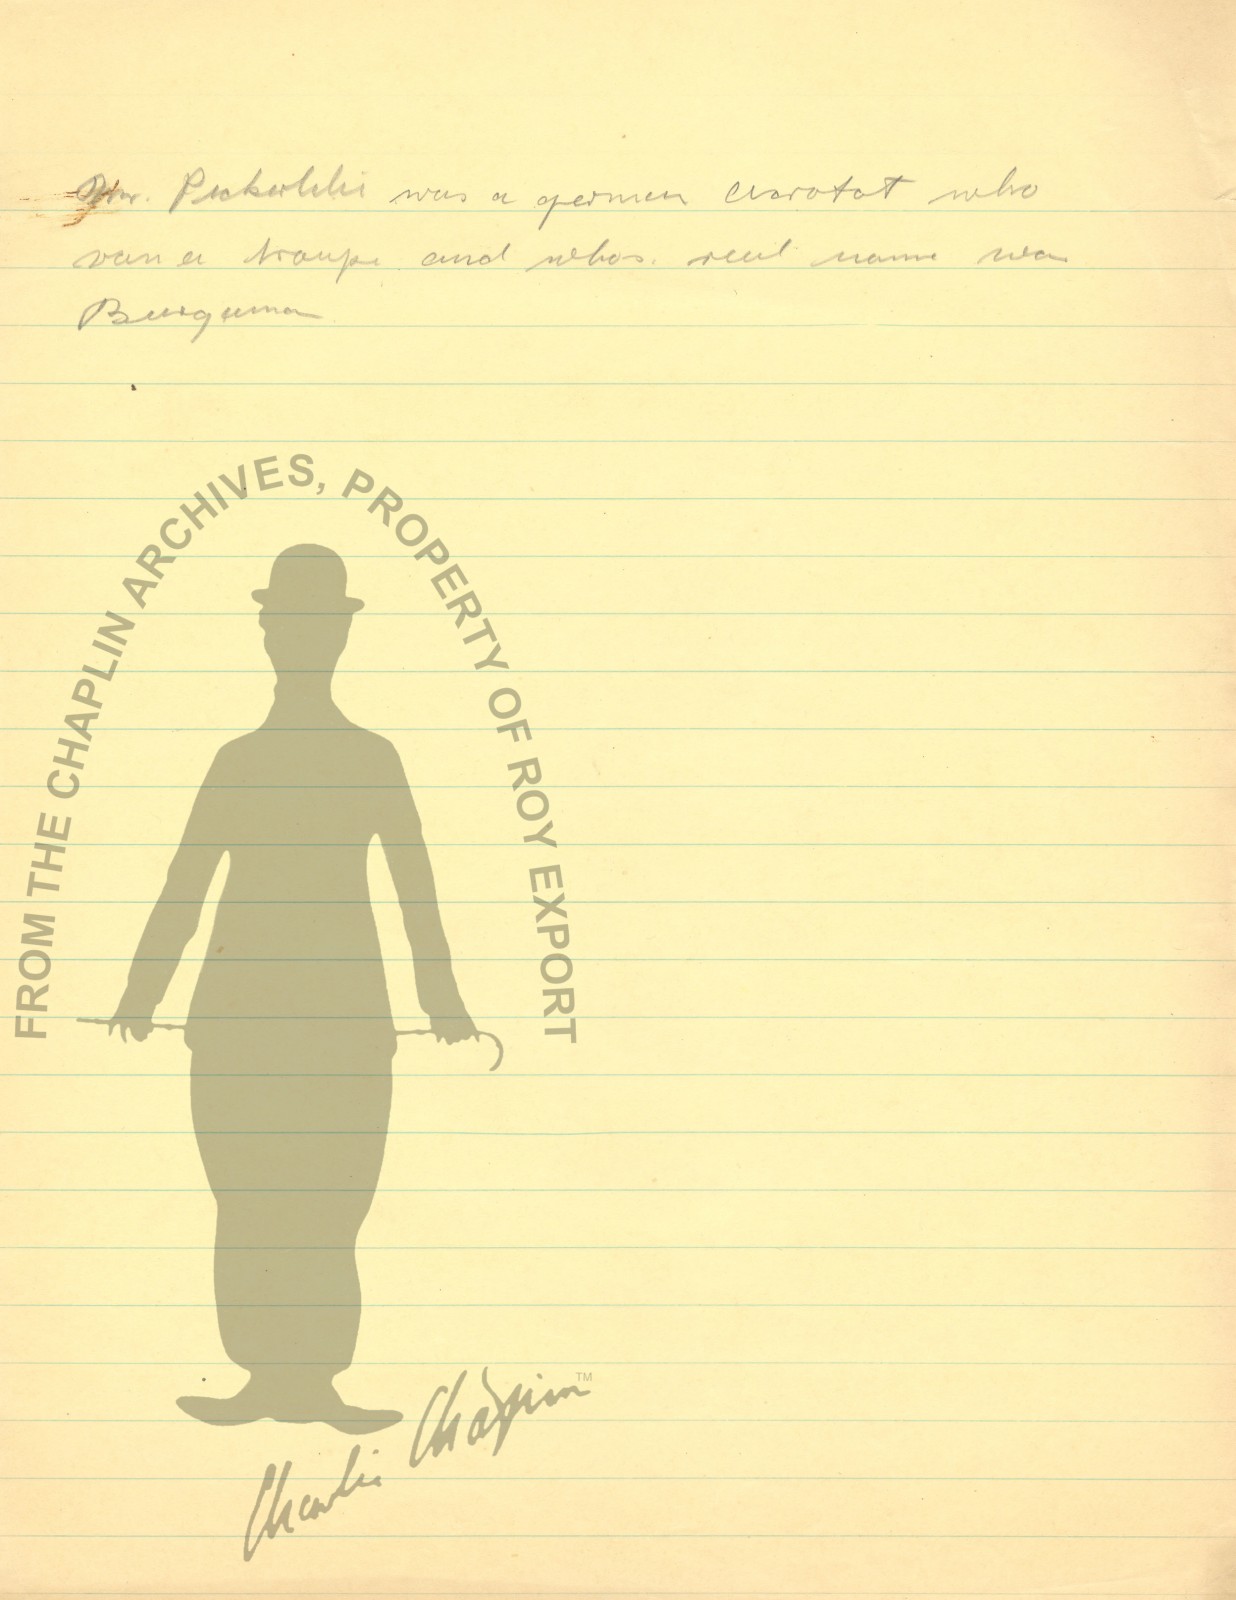 Mr. was a german acrobat who
ran a troupe and whos. real name was
FROM THE CHAPLIN ARCHIVES, PROPERTY OF ROY EXPORT
Charlie Chaplin™